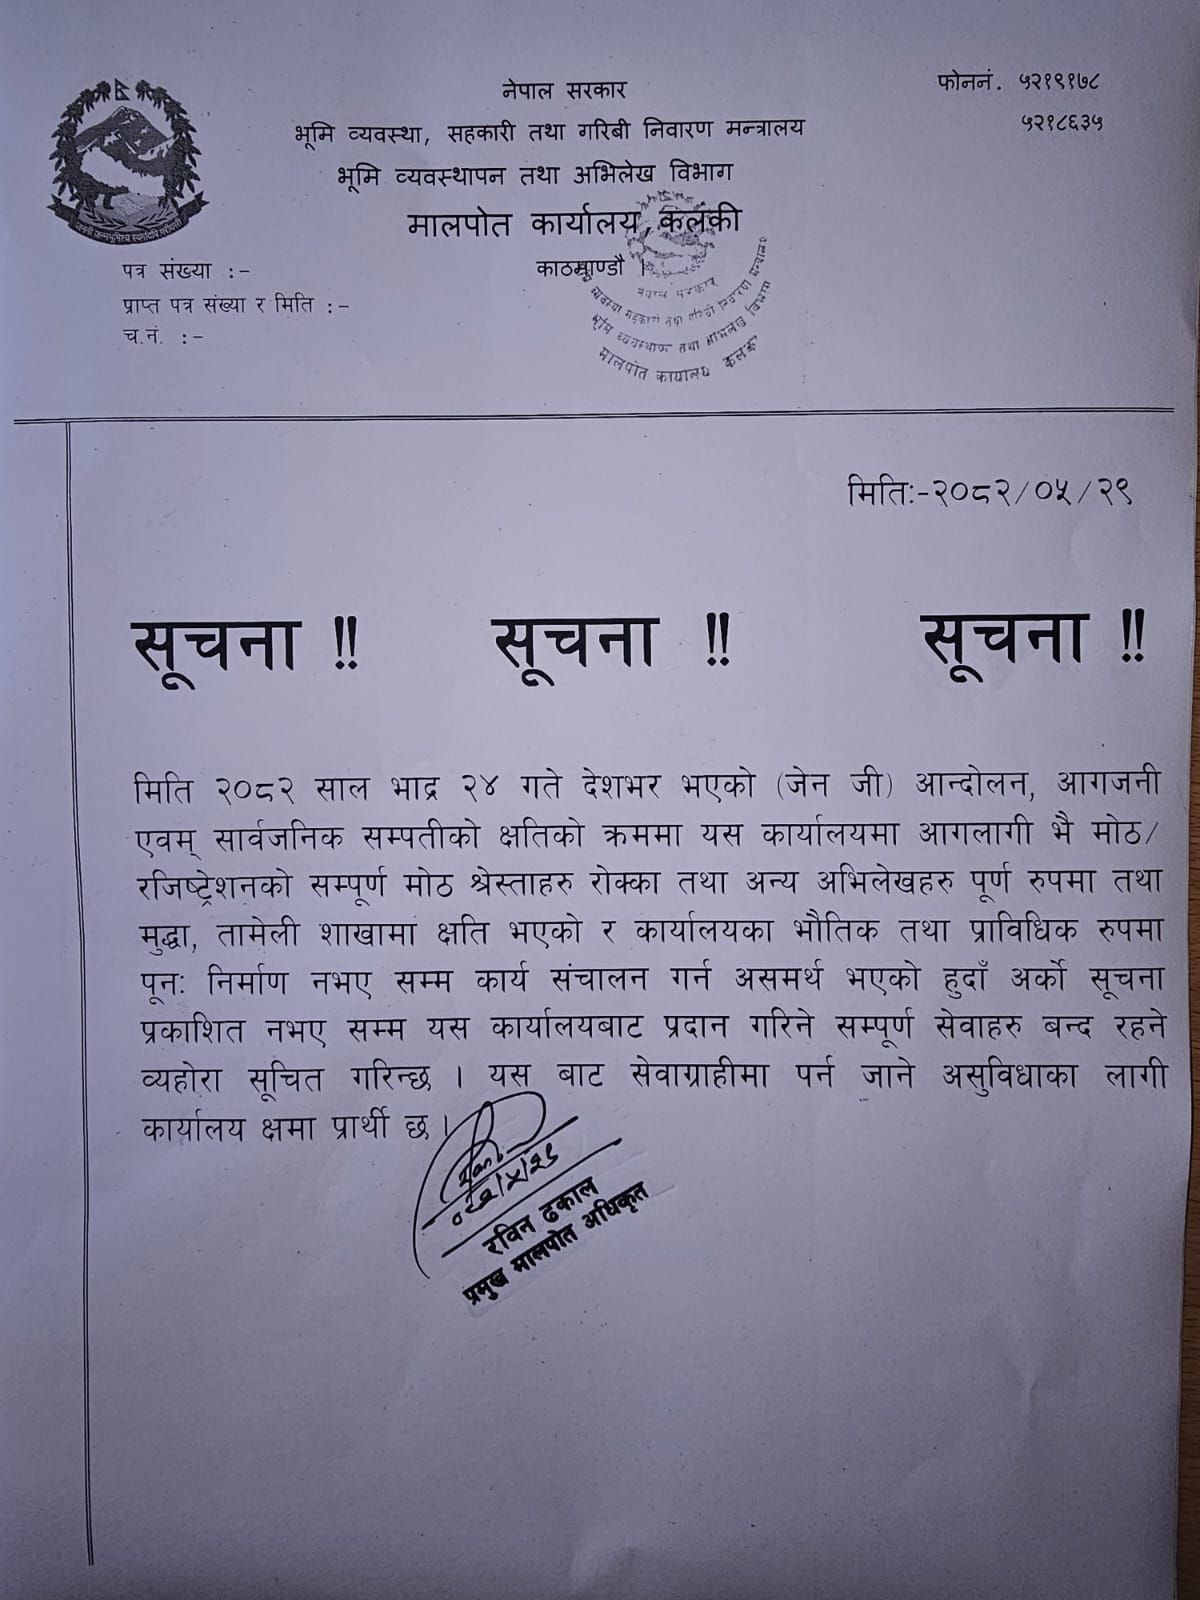 नेपाल सरकार
भूमि व्यवस्था, सहकारी तथा गरिबी निवारण मन्त्रालय
भूमि व्यवस्थापन तथा अभिलेख विभाग
मालपोत कार्यालय, कलंकी
काठमाण्डौ ।
फोननं. ५२१९१७८
५२१८६३५
पत्र संख्या :-
प्राप्त पत्र संख्या र मिति :-
च.नं. :-
नेपाल सरकार
व्यवस्था सहकारी तथा गरिबी निवारण मन्त्रालय
भूमि व्यवस्थापन तथा अभिलेख विभाग
मालपोत कार्यालय कलंकी
मितिः-२०८२/०५/२९
सूचना !! सूचना !! सूचना !!
मिति २०८२ साल भाद्र २४ गते देशभर भएको (जेन जी) आन्दोलन, आगजनी
एवम् सार्वजनिक सम्पतीको क्षतिको क्रममा यस कार्यालयमा आगलागी भै मोठ/
रजिष्ट्रेशनको सम्पूर्ण मोठ श्रेस्ताहरु रोक्का तथा अन्य अभिलेखहरु पूर्ण रुपमा तथा
मुद्धा, तामेली शाखामा क्षति भएको र कार्यालयका भौतिक तथा प्राविधिक रुपमा
पूनः निर्माण नभए सम्म कार्य संचालन गर्न असमर्थ भएको हुदाँ अर्को सूचना
प्रकाशित नभए सम्म यस कार्यालयबाट प्रदान गरिने सम्पूर्ण सेवाहरु बन्द रहने
व्यहोरा सूचित गरिन्छ । यस बाट सेवाग्राहीमा पर्न जाने असुविधाका लागी
कार्यालय क्षमा प्रार्थी छ ।
रविन ढकाल
प्रमुख मालपोत अधिकृत